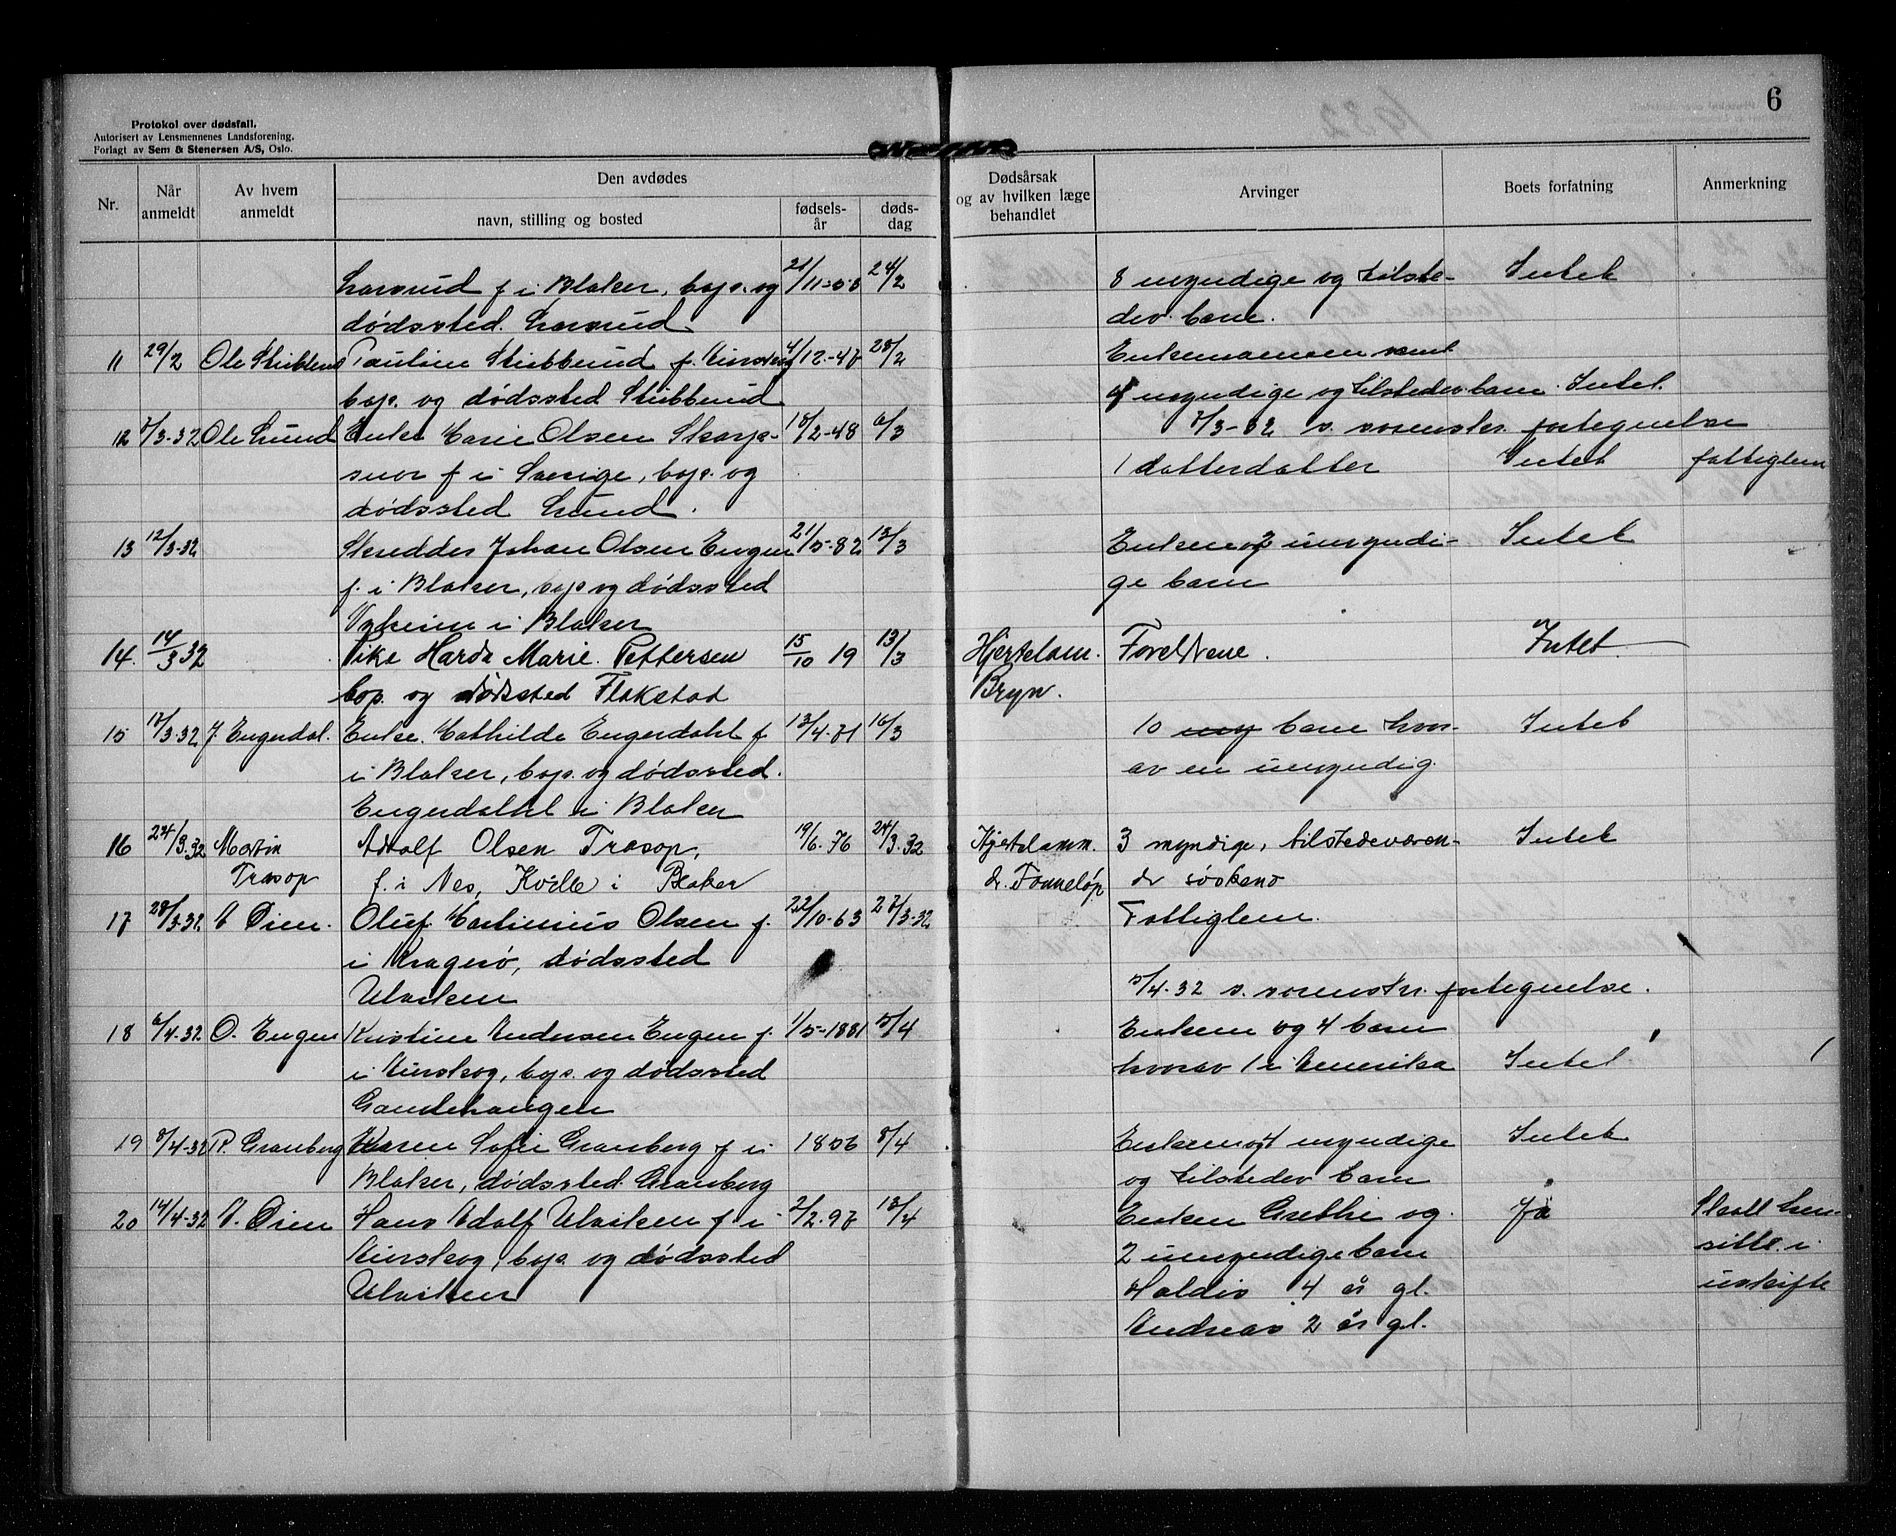 1932
6
Protokol over dødsfall.
Autorisert av Lensmennenes Landsforening.
Forlagt av Sem & Stenersen A/S, Oslo.
Nr.
Når anmeldt
Av hvem anmeldt
Den avdødes
navn, stilling og bosted
fødsels-år
døds-dag
Dødsårsak
og av hvilken læge
behandlet
Arvinger
Boets forfatning
Anmerkning
f i Blaker, bop. og 24/2 8 myndige og tilste- Intet
dødssted. dev. barn.
11 29/2 Ole Pauline Stubberud f. 4/12.-48 28/2 Enkemannen samt
bop. og dødssted Stubberud 4 myndige og tilstedev. barn. Intet.
12 7/3-32 Ole Lund Enke Marie Olsen Skarp- 18/2-48 6/3 7/3-32 s. sorenskr. fortegnelse
snor f i Sverige, bop. og 1 datterdatter Intet fattiglem
dødssted Lund.
13 12/3-32 Skredder Johan Olsen Engen 21/5-82 12/3 Enken og 2 umyndi- Intet
f. i Blaker, bop og dødssted ge barn
i Blaker
14. 14/3 32 Pike Harda Marie. Pettersen 15/10 19 13/3 Hjertelam. Foreldrene. Intet.
bop. og dødssted Flakstad Bryn.
15 17/3-32 J. Engerdal. Enke. Mathilde Engerdahl f 13/4-71 16/3 10 myn barn hvor- Intet
i Blaker, bop. og dødssted. av en umyndig.
Engerdahl i Blaker
16 24/3.32 Martin Adolf Olsen Trasop, 19/6.76 24/3.32 Hjertelamm. 3 myndige, tilstedeværen- Intet
Trasop f. i Nes, Kville i Blaker dr. Fonneløp de søsken
17 28/3-32 A Øien. Oluf Martinius Olsen f. 22/10-63 27/3-32 Fattiglem.
i Kragerø, dødssted
Ulviken 5/4-32 s. sorenskr. fortegnelse.
18 6/4-32 O. Engen Kristine Andersen Engen f. 1/5-1881 5/4 Enkem og 4 barn
i Aurskog, bop. og dødssted hvorav 1 i Amerika Intet
Gandehaugen
19 8/4-32 R. Granberg Karen Sofie Granberg f i 1856 8/4 Enkem og 4 myndige Intet
Blaker, dødssted. Granberg og tilstedev barn
20 14/4-32 A. Øien Hans Adolf Ulviken f i 2/2.97 13/4 Enken Grethe og Ja Skall hen-
Aurskog, bop. og dødssted 2 umyndige barn sitte i
Ulviken Haldis 4 år gl. uskifte
Andreas 2 år gl.